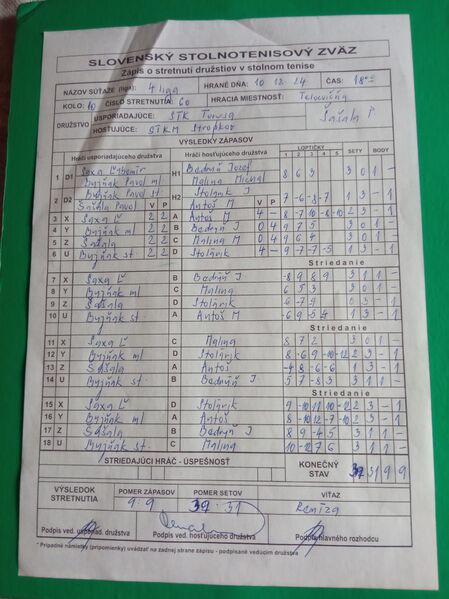 SLOVENSKÝ STOLNOTENISOVÝ ZVÄZ
Zápis o stretnutí družstiev v stolnom tenise
NÁZOV SÚŤAŽE (liga): 4 liga HRANÉ DŇA: 10.12.24 ČAS: 18°°
KOLO: 10 ČÍSLO STRETNUTIA: 60 HRACIA MIESTNOSŤ: Telocvičňa
DRUŽSTVO USPORIADAJÚCE: STK Turcia Šašala P
HOSŤUJÚCE: STKM Stropkov
VÝSLEDKY ZÁPASOV
Hráči usporiadajúceho družstva Hráči hosťujúceho družstva LOPTIČKY SETY BODY
1 2 3 4 5
1 D1 Saxa Ľubomír H1 Bedruň Jozef 8 6 3 3 0 1 -
Burjňák Pavol ml Malina Michal
2 D2 Burjňák Pavol st H2 Stolárik J 7 -6 -8 -7 1 3 - 1
Šašala Pavol V P Antoš M V P
3 X Saxa Ľ 2 2 A Antoš M 4 - 8 -7 10 -8 -10 2 3 - 1
4 Y Burjňák ml 2 2 B Bedruň J 0 4 9 7 5 3 0 1 -
5 Z Šašala 2 2 C Malina M 0 4 9 6 7 3 0 1 -
6 U Burjňák st 2 2 D Stolárik 4 - 9 -7 -7 -5 1 3 - 1
Striedanie
7 X Saxa Ľ B Bedruň J -8 9 8 9 3 1 1 -
8 Y Burjňák ml C Malina 6 5 3 3 0 1 -
9 Z Šašala D Stolárik
10 U Burjňák st. A Antoš M -6 9 5 4
Striedanie
11 X Saxa Ľ C Malina 8 7 2 3 0 1 -
12 Y Burjňák ml D Stolárik 8 -6 9 -10 -12 2 3 - 1
13 Z Šašala A Antoš -4 8 -6 -6 1 3 - 1
14 U Burjňák st. B Bedruň J 5 7 -8 3 3 1 1 -
Striedanie
15 X Saxa Ľ D Stolárik 2 3 - 1
16 Y Burjňák ml A Antoš 2 3 - 1
17 Z Šašala B Bedruň J 8 9 -4 5 3 1 1 -
18 U Burjňák st. C Malina 10 -12 7 6 3 1 1 -
STRIEDAJÚCI HRÁČ - ÚSPEŠNOSŤ KONEČNÝ STAV 31 9 9
VÝSLEDOK STRETNUTIA POMER ZÁPASOV POMER SETOV VÍŤAZ
9:9 31 Remíza
Podpis ved. usporiad. družstva Podpis ved. hosťujúceho družstva Podpis hlavného rozhodcu
* Prípadné námietky (pripomienky) uvádzať na zadnej strane zápisu - podpísané vedúcim družstva